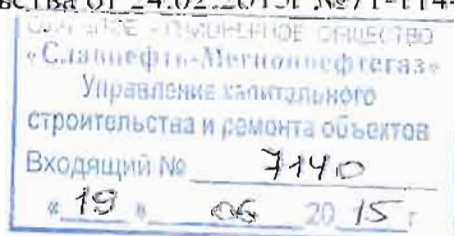 ства от 24.02.2015г №71-114-
ОБЩЕСТВО
«Славнефть-Мегионнефтегаз»
Управление капитального
строительства и ремонта объектов
Входящий № 7140
«19» 06 2015 г